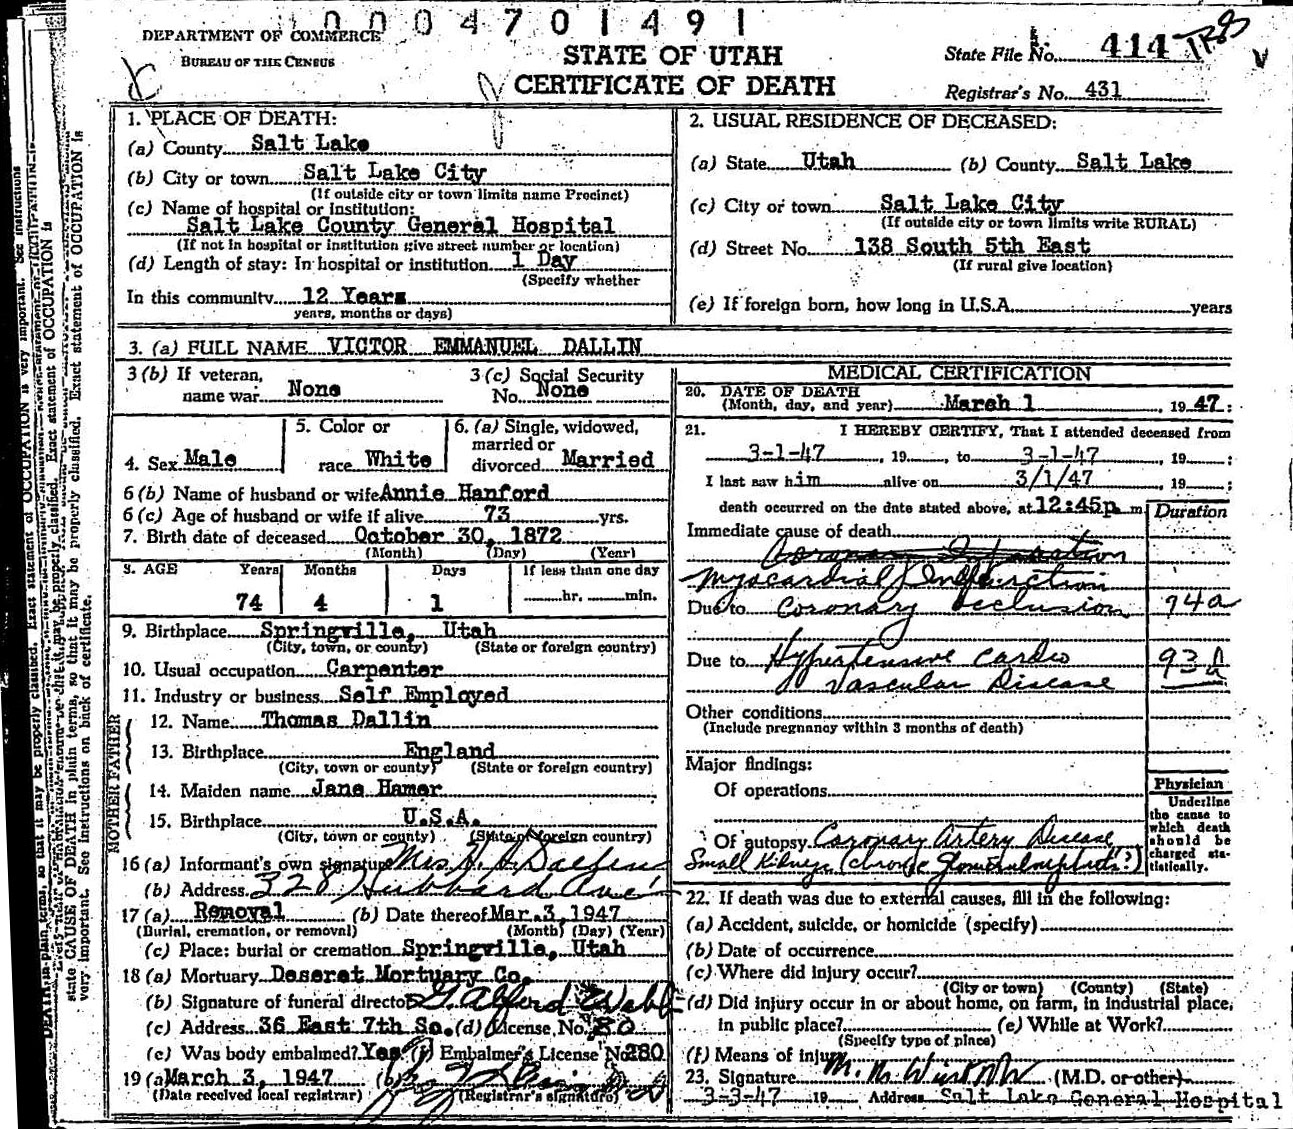 0004701491
DEPARTMENT OF COMMERCE
BUREAU OF THE CENSUS
STATE OF UTAH
CERTIFICATE OF DEATH
State File No. 414
Registrar's No. 431
1. PLACE OF DEATH:
(a) County Salt Lake
(b) City or town Salt Lake City
(If outside city or town limits name Precinct)
(c) Name of hospital or institution:
Salt Lake County General Hospital
(If not in hospital or institution give street number or location)
(d) Length of stay: In hospital or institution 1 Day
(Specify whether
In this community 12 Years
years, months or days)
2. USUAL RESIDENCE OF DECEASED:
(a) State Utah (b) County Salt Lake
(c) City or town Salt Lake City
(If outside city or town limits write RURAL)
(d) Street No. 138 South 5th East
(If rural give location)
(e) If foreign born, how long in U.S.A. years
3. (a) FULL NAME VICTOR EMMANUEL DALLIN
3 (b) If veteran, name war None
3 (c) Social Security No. None
4. Sex Male
5. Color or race White
6. (a) Single, widowed, married or divorced Married
6 (b) Name of husband or wife Annie Hanford
6 (c) Age of husband or wife if alive 73 yrs.
7. Birth date of deceased October 30, 1872
(Month) (Day) (Year)
8. AGE Years Months Days If less than one day
74 4 1 hr. min.
9. Birthplace Springville, Utah
(City, town, or county) (State or foreign country)
10. Usual occupation Carpenter
11. Industry or business Self Employed
FATHER
12. Name Thomas Dallin
13. Birthplace England
(City, town or county) (State or foreign country)
MOTHER
14. Maiden name Jane Hamer
15. Birthplace U.S.A.
(City, town or county) (State or foreign country)
16 (a) Informant's own signature Mrs.
(b) Address 328 Hubbard Ave
17 (a) Removal (b) Date thereof Mar. 3, 1947
(Burial, cremation, or removal) (Month) (Day) (Year)
(c) Place: burial or cremation Springville, Utah
18 (a) Mortuary Deseret Mortuary Co.
(b) Signature of funeral director G. Alford Webb
(c) Address 36 East 7th So. (d) License No. 80
(e) Was body embalmed? Yes (f) Embalmer's License No 280
19 (a) March 3, 1947 (b)
(Date received local registrar) (Registrar's signature)
MEDICAL CERTIFICATION
20. DATE OF DEATH
(Month, day, and year) March 1, 1947:
21. I HEREBY CERTIFY, That I attended deceased from
3-1-47, 19, to 3-1-47, 19;
I last saw him alive on 3/1/47, 19;
death occurred on the date stated above, at 12:45p m
Duration
Immediate cause of death
Coronary Infarction
Myocardial Infarction
Due to Coronary Occlusion 94a
Due to Hypertensive Cardio 93d
Vascular Disease
Other conditions
(Include pregnancy within 3 months of death)
Major findings:
Of operations
Of autopsy Coronary Artery Disease
Small Kidneys (chronic glomerulonephritis?)
Physician
Underline the cause to which death should be charged statistically.
22. If death was due to external causes, fill in the following:
(a) Accident, suicide, or homicide (specify)
(b) Date of occurrence
(c) Where did injury occur?
(City or town) (County) (State)
(d) Did injury occur in or about home, on farm, in industrial place,
in public place? (e) While at Work?
(Specify type of place)
(f) Means of injury
23. Signature (M.D. or other)
3-3-47 19 Address Salt Lake General Hospital